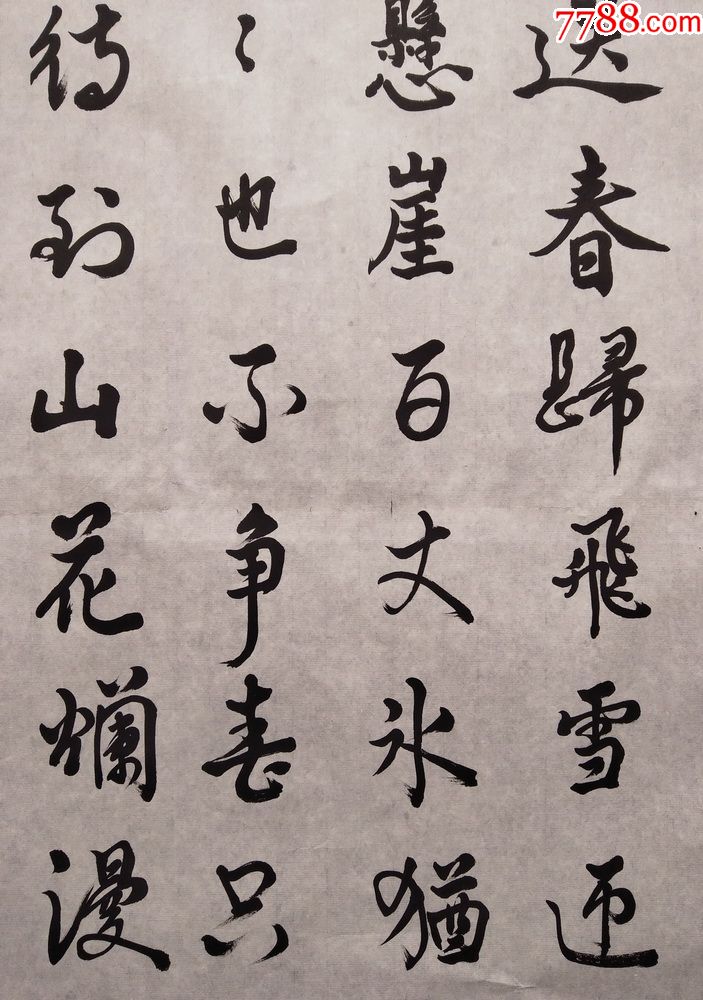 7788.com
送春歸飛雪迎
懸崖百丈氷猶
〻也不争春只
待到山花爛漫